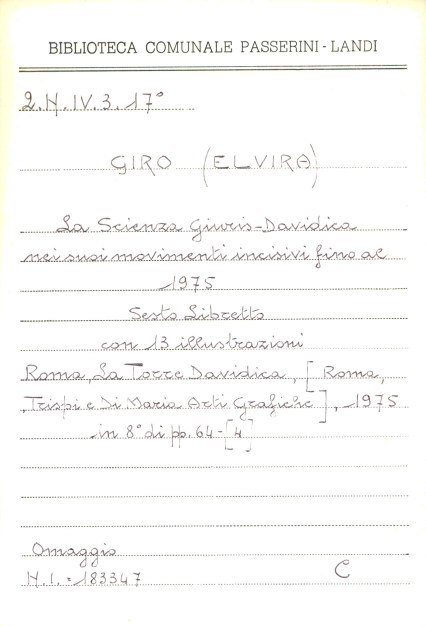 BIBLIOTECA COMUNALE PASSERINI - LANDI
2.H.IV.3.17°
GIRO (ELVIRA)
La Scienza Giuris-Davidica
nei suoi movimenti incisivi fino al
1975
Sesto Libretto
con 13 illustrazioni
Roma, La Torre Davidica, [Roma,
Trispi e Di Maria Arti Grafiche], 1975
in 8° di pp. 64-[4]
Omaggio
N.I. = 183347
C